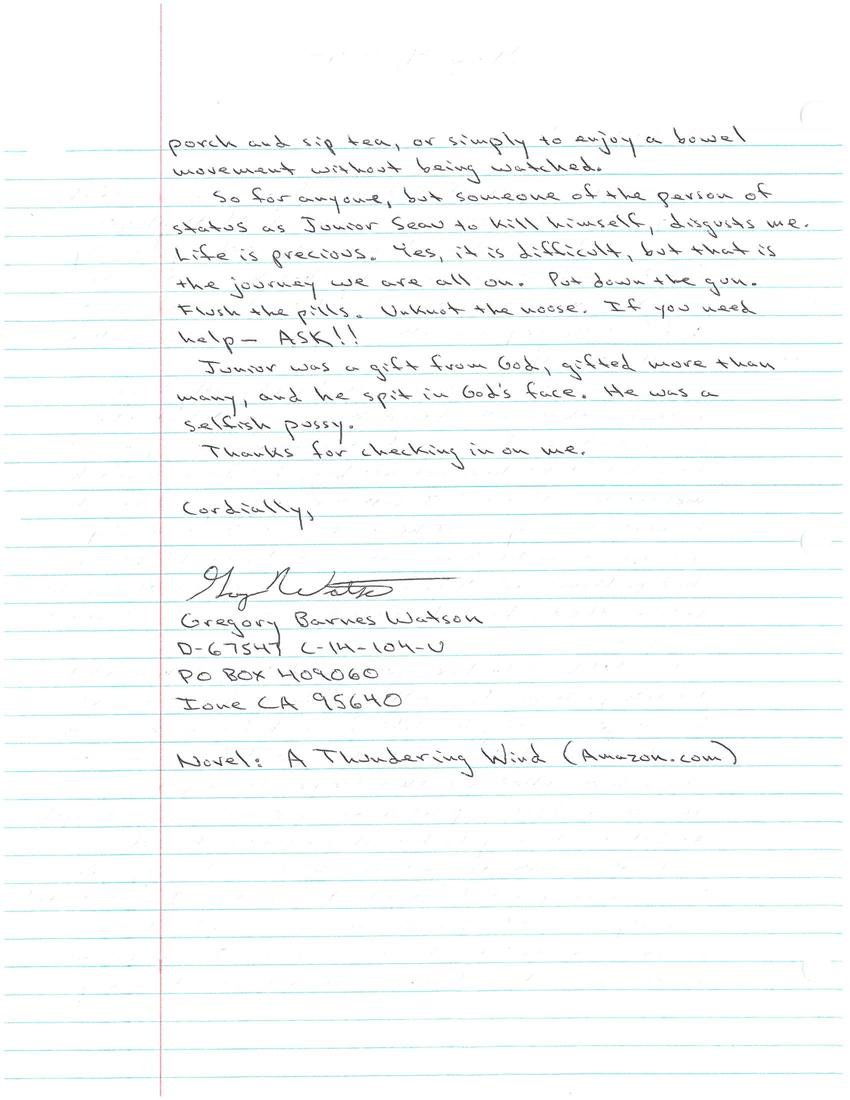 porch and sip tea, or simply to enjoy a bowel
movement without being watched.
So for anyone, but someone of the person of
status as Junior Seau to kill himself, disgusts me.
Life is precious. Yes, it is difficult, but that is
the journey we are all on. Put down the gun.
Flush the pills. Unknot the noose. If you need
help- ASK!!
Junior was a gift from God, gifted more than
many, and he spit in God's face. He was a
selfish pussy.
Thanks for checking in on me.
Cordially,
Gregory Barnes Watson
D-67547 C-14-104-U
PO BOX 409060
Ione CA 95640
Novel: A Thundering Wind (Amazon.com)